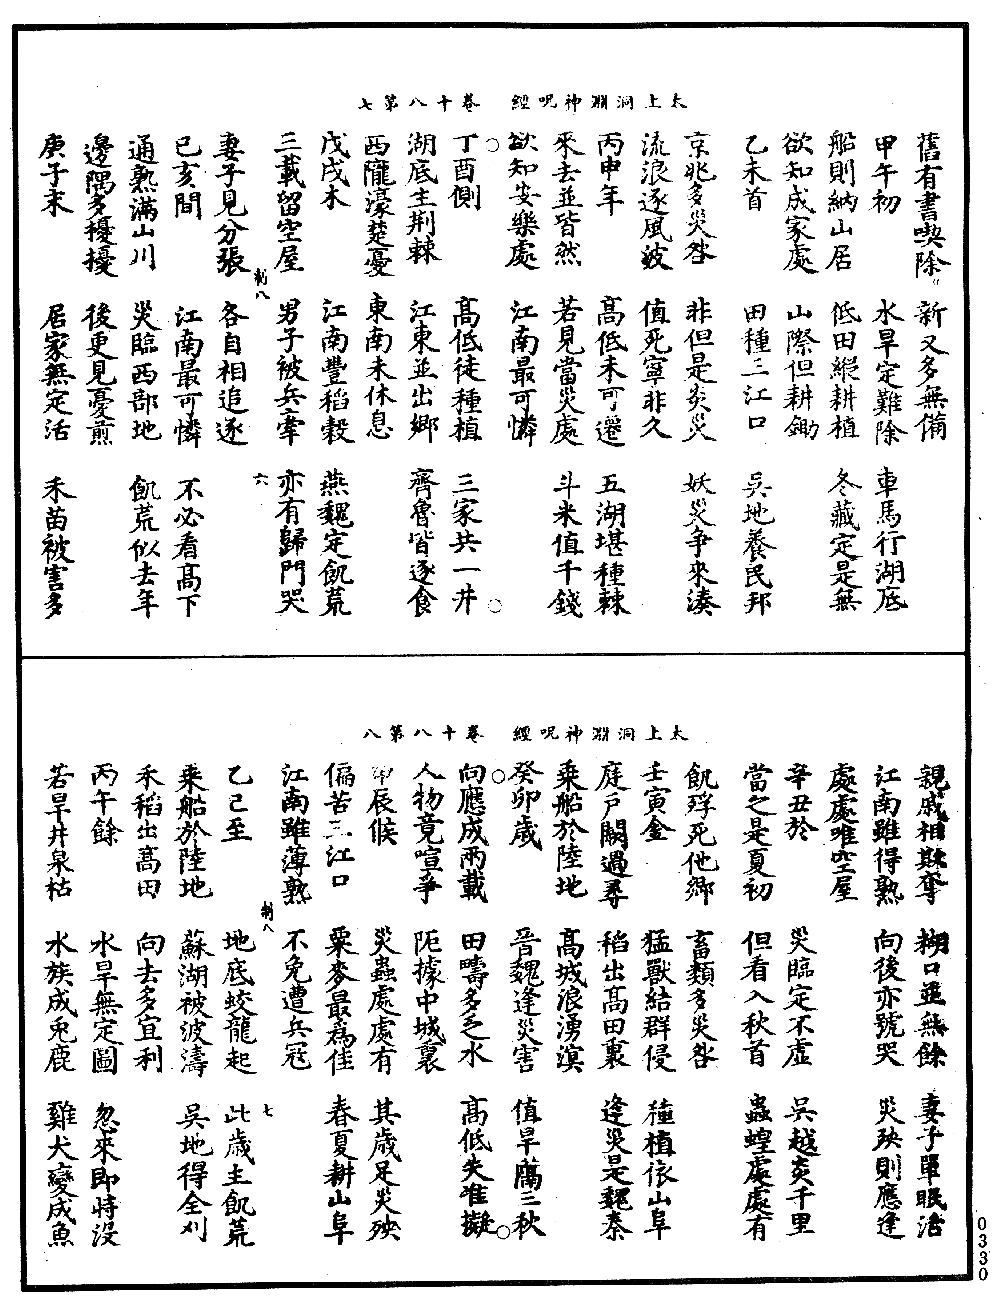 太上洞淵神呪經　卷十八第七
舊有書喫除　新又多無備
甲午初　水旱定難除　車馬行湖底
船則納山居　低田縱耕植　冬藏定是無
欲知成家處　山際但耕鋤
乙未首　田種三江口　吳地養民邦
京兆多災咎　非但是炎災　妖災爭來湊
流浪逐風波　值死寧非久
丙申年　高低未可遷　五湖堪種棘
來去並皆然　若見當災處　斗米值千錢
欲知安樂處　江南最可憐
丁酉側　高低徒種植　三家共一井
湖底生荆棘　江東並出鄉　齊魯皆逐食
西隴濠楚憂　東南未休息
戊戌木　江南豐稻穀　燕魏定飢荒
三載留空屋　男子被兵牽　亦有歸門哭
制八　六
妻子見分張　各自相追逐
已亥間　江南最可憐　不必看高下
通熟滿山川　災臨西部地　飢荒似去年
邊隅多擾擾　後更見憂煎
庚子末　居家無定活　禾苗被害多
太上洞淵神呪經　卷十八第八
親戚相欺奪　糊口並無餘　妻子單眠活
江南雖得熟　向後亦號哭　災殃則應逢
處處唯空屋
辛丑於　災臨定不虛　吳越炎千里
當之是夏初　但看入秋首　蟲蝗處處有
飢殍死他鄉　畜類多災咎
壬寅金　猛獸結群侵　種植依山阜
庭戸闕過尋　稻出高田裏　逢災是魏秦
乘船於陸地　高城浪湧溟
癸卯歲　晉魏逢災害　值旱薦三秋
向應成兩載　田疇多乏水　高低失准擬
人物竟喧爭　阨據中城裏
甲辰候　災蟲處處有　其歲足災殃
偏苦三江口　粟麥最爲佳　春夏耕山阜
江南雖薄熟　不免遭兵冦
制八　七
乙已至　地底蛟龍起　此歲主飢荒
乘船於陸地　蘇湖被波濤　吳地得全刈
禾稻出高田　向去多宜利
丙午餘　水旱無定圖　忽來即時没
若旱井泉枯　水族成兎鹿　雞犬變成魚
0330